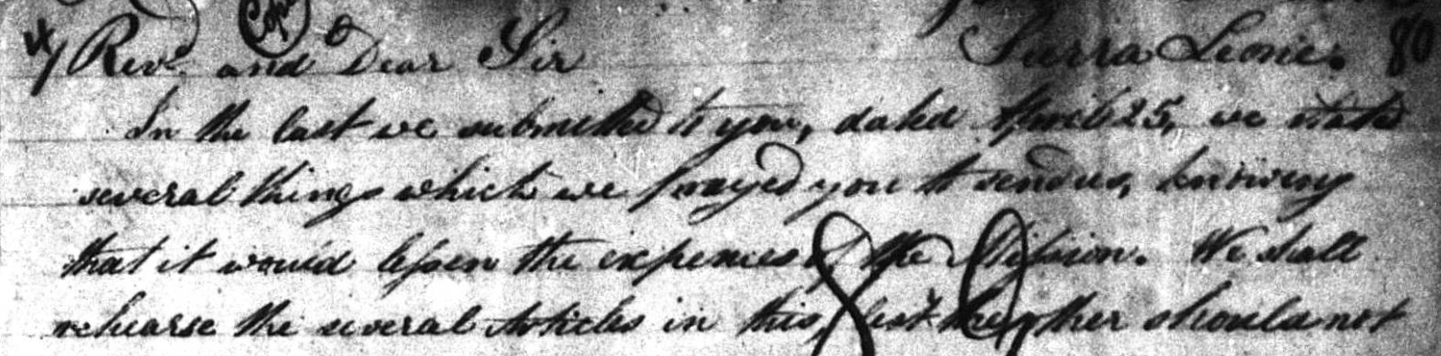 4/ Copy Revd. and Dear Sir Surra Leone. 80
In the last we submitted to you, dated April 25, we stated
several things which we prayed you to send us, knowing
that it would lessen the expences of the Mission. We shall
rehearse the several Articles in this, lest the other should not